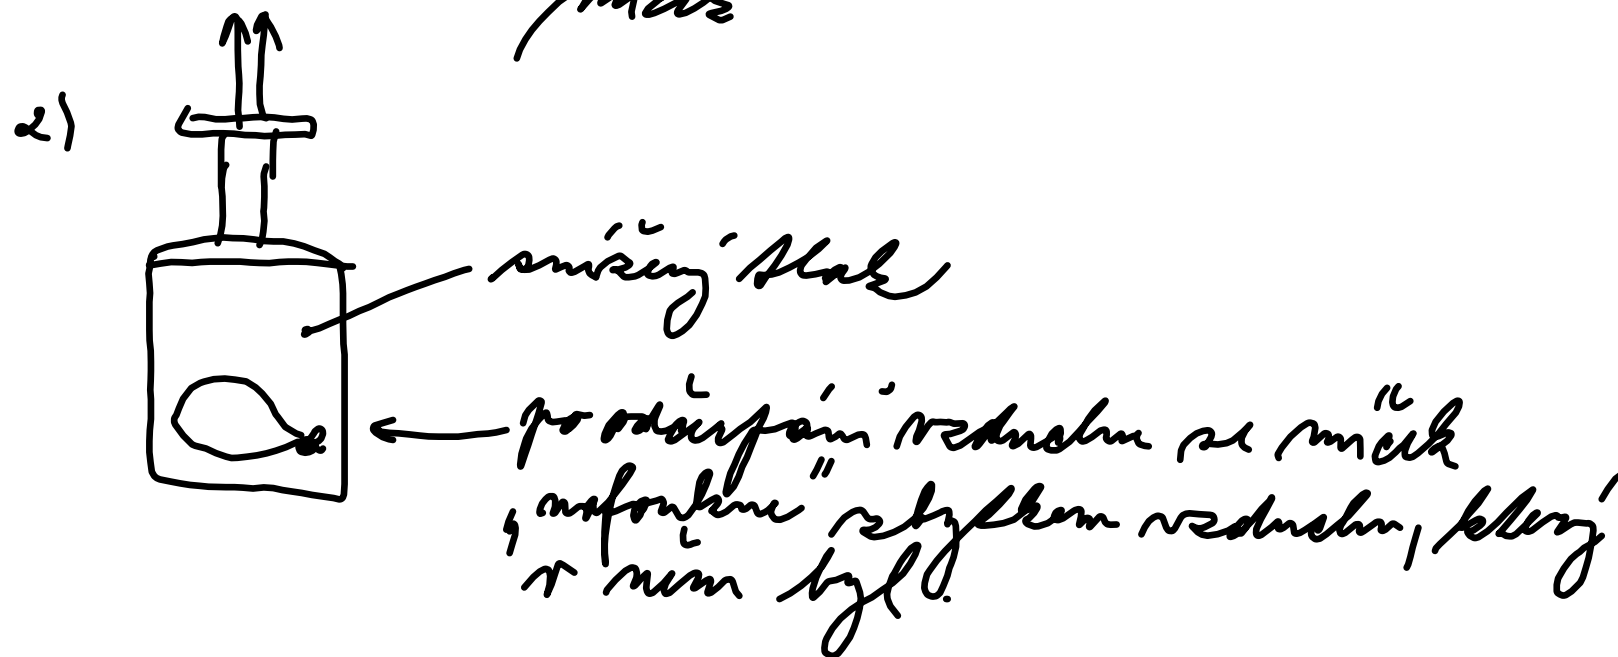 2)
snížený tlak
po odčerpání vzduchu se míček
„nafoukne" zbytkem vzduchu, který
v něm byl.